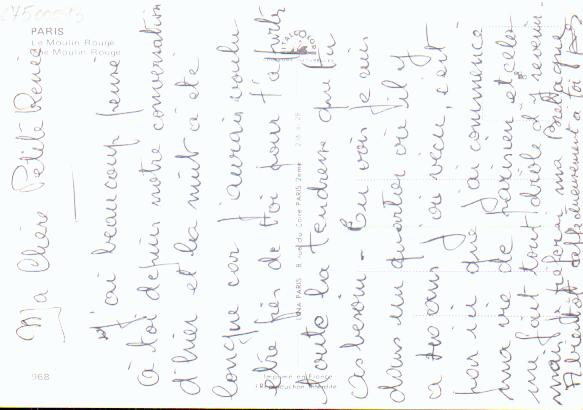 C7500013
PARIS
Le Moulin Rouge
The Moulin Rouge
Ma Chère Petite Renée
J'ai beaucoup pensé
à toi depuis notre conversation
d'hier et la nuit a été
longue car j'aurais voulu
être près de toi pour t'apporter
toute la tendresse que tu
as besoin. En vois je suis
dans un quartier où il y
a 20 ans j'ai vécu, c'est
par ici que j'ai commencé
ma vie de Parisien et cela
me fait tout drôle d'y revenir
mais je préfère ma Bretagne.
affectueusement à toi
UNA PARIS 8, rue du Caire PARIS 2ème
968
Imprimé en France
Reproduction interdite